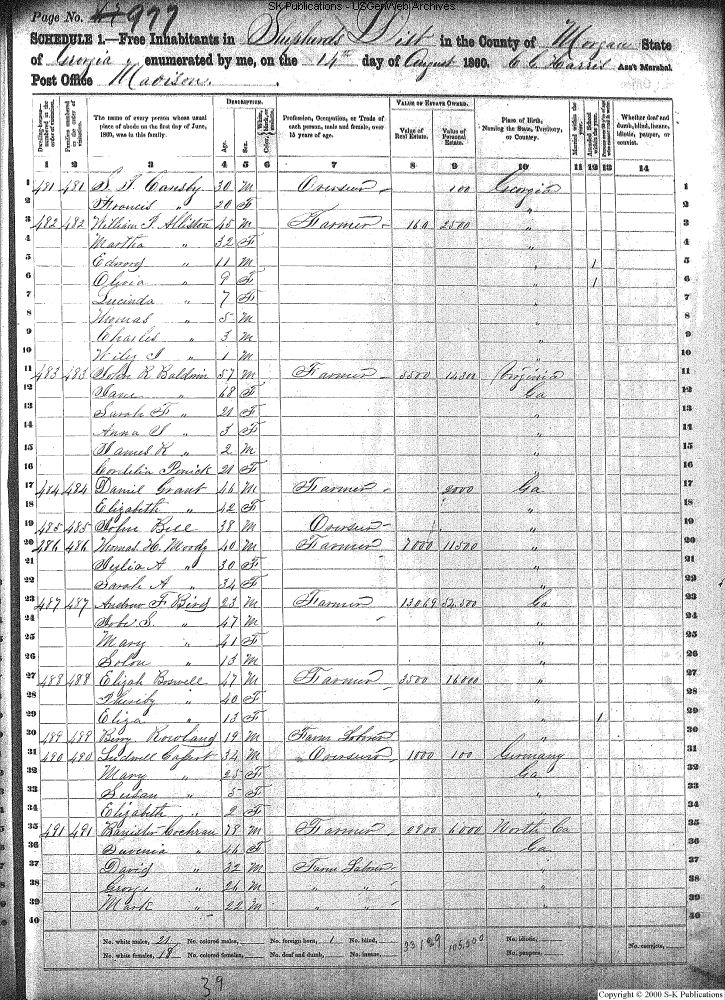 SK Publications - USGenWeb Archives
Page No. 977
SCHEDULE 1.—Free Inhabitants in Shepherds Dist in the County of Morgan State
of Georgia enumerated by me, on the 14th day of August 1860. C C Harris Ass't Marshal.
Post Office Madison.
DESCRIPTION. VALUE OF ESTATE OWNED.
Dwelling-houses—numbered in the order of visitation. Families numbered in the order of visitation. The name of every person whose usual place of abode on the first day of June, 1860, was in this family. Age. Sex. Color Profession, Occupation, or Trade of each person, male and female, over 15 years of age. Value of Real Estate. Value of Personal Estate. Place of Birth, Naming the State, Territory, or Country. Married within the year. Attended School within the year. Whether deaf and dumb, blind, insane, idiotic, pauper, or convict.
1 2 3 4 5 6 7 8 9 10 11 12 13 14
1 481 481 30 M Overseer 100 Georgia 1
2 Frances " 20 F " 2
3 482 482 William Alliston 45 M Farmer 160 2500 " 3
4 Martha " 32 F " 4
5 Edward " 11 M " 1 5
6 Olivia " 9 F " 1 6
7 Lucinda " 7 F " 7
8 Thomas " 5 M " 8
9 Charles " 3 M " 9
10 Wiley J " 1 M " 10
11 483 483 John R Baldwin 57 M Farmer 5500 14300 Virginia 11
12 Jane " 68 F Ga 12
13 Sarah F " 20 F " 13
14 Anna " 3 F " 14
15 James R " 2 M " 15
16 Cordelia Penick 20 F " 16
17 484 484 Daniel Grant 46 M Farmer 2000 Ga 17
18 Elizabeth " 42 F " 18
19 485 485 John Bell 38 M Overseer " 19
20 486 486 Thomas H. Moody 40 M Farmer 7000 11500 " 20
21 Julia A " 30 F " 21
22 Sarah A " 34 F " 22
23 487 487 Andrew F Bird 23 M Farmer 13069 52,500 Ga 23
24 Jobe S. " 47 M " 24
25 Mary " 41 F " 25
26 Solon " 13 M " 26
27 488 488 Elizah Boswell 47 M Farmer 3500 16000 " 27
28 " 40 F " 28
29 Eliza " 13 F " 1 29
30 489 489 Berry Rowland 19 M Farm Laborer " 30
31 490 490 34 M " Overseer 1000 100 Germany 31
32 Mary " 25 F Ga 32
33 Susan " 5 F " 33
34 Elizabeth " 2 F " 34
35 491 491 Banister Cochran 78 M Farmer 2900 6000 North Ca 35
36 " 46 F Ga 36
37 David " 32 M Farm Laborer " 37
38 George " 26 M " " " 38
39 Mark " 22 M " " " 39
40 40
No. white males, 21 No. colored males, No. foreign born, 1 No. blind, 33,129 105,500 No. idiotic, No. convicts,
No. white females, 18 No. colored females, No. deaf and dumb, No. insane, No. paupers,
39
Copyright © 2000 S-K Publications